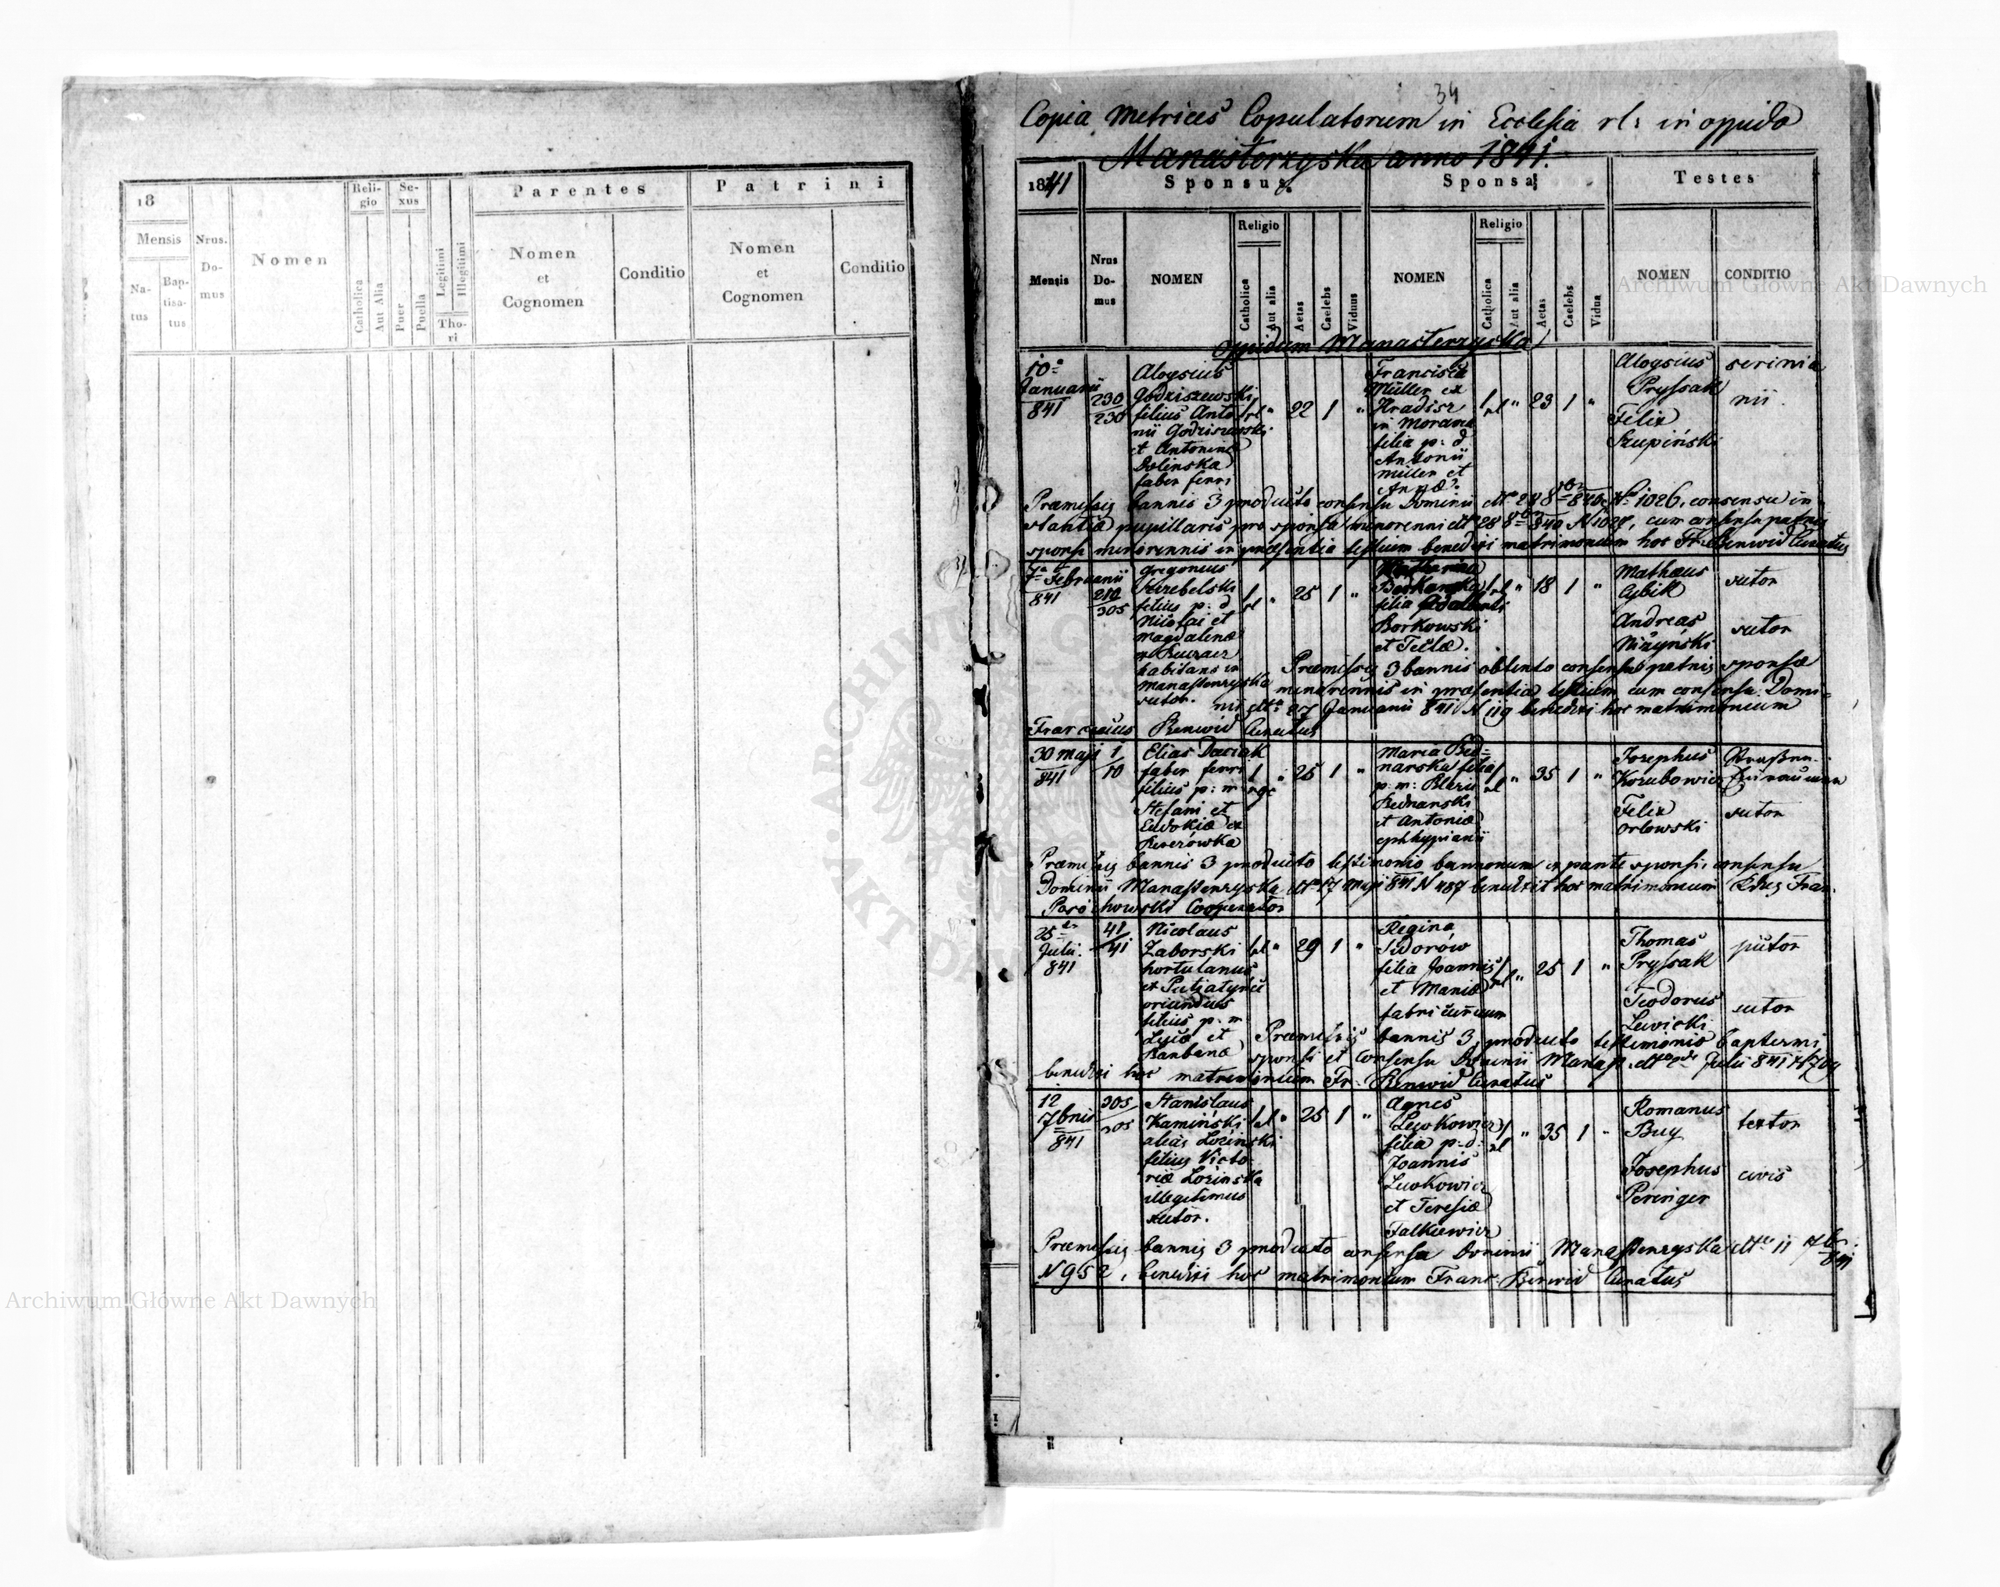 18
Mensis
Na-
tus
Bap-
tisa-
tus
Nrus.
Do-
mus
Nomen
Reli-
gio
Catholica
Aut Alia
Se-
xus
Puer
Puella
Legitimi
Illegitimi
Tho-
ri
Parentes
Nomen
et
Cognomen
Conditio
Patrini
Nomen
et
Cognomen
Conditio
34
Copia Metrices Copulatorum in Ecclesia rl: in oppido
Manasterzyska anno 1841.
1841
Sponsus
Sponsa
Testes
Mensis
Nrus
Do-
mus
NOMEN
Religio
Catholica
Aut alia
Aetas
Caelebs
Viduus
NOMEN
Religio
Catholica
Aut alia
Aetas
Caelebs
Vidua
NOMEN
CONDITIO
oppidum Manasterzyska
10a
Januarii
841
230
230
Aloysius
Godziszewski
filius Anto
nii Godziszewski
et Antonina
Dolinska
faber ferri
rl " 22 1 "
Francisca
Müller ex
Hradisz
in Moravia
filia p: d
Antonii
Miller et
Annæ
rl " 23 1 "
Aloysius
Pryssak
Felix
Szupiński
scrinia
rii
Præmissis bannis 3 producto consensu Dominii dto 28 8bris 840 No 1026, consensu in
stantiæ pupillaris pro sponsa minorenni dto 28 8bris 840 N 1027, cum consensu patris
sponsi minorennis in præsentia testium benedixi matrimonium hoc Fr: Benwid Curatus
7a Februarii
841
210
305
Gregorius
Strebelski
filius p: d
Nicolai et
Magdalenæ
habitans in
Manasterzyska
sutor.
rl " 25 1 "
Borkowski
et Teclæ.
rl " 18 1 "
Mathæus
Cybik
sutor
Andreas
Nizyński
sutor
Præmissis 3 bannis obtento consensu patris sponsæ
minorennis in præsentia testium, cum consensu Domi-
nii dto 27 Januarii 841 N 119 benedixi hoc matrimonium
Franciscus Benwid Curatus
30 Maji
841
1
10
Elias Daviak
faber ferri
filius p: m
Stefani et
Eudokiæ ex
Berezówka
rgc " 25 1 "
Maria Bed-
narska filia
p: m: Blasii
Bednarski
et Antoniæ
ephippiarii
rl " 35 1 "
Josephus
Korubowicz
Felix
Orlowski
sutor
Præmissis bannis 3 producto testimonio bannorum ex parte sponsi, consensu
Dominii Manasterzyska dto 17 Maji 841 N 487 benedixit hoc matrimonium Rdus Fran.
Porochowski Cooperator
25ta
Julii.
841
41
41
Nicolaus
Zaborski
hortulanus
ex Putiatyńce
oriundus
filius p: m
Lucæ et
Barbaræ
rl " 29 1 "
Regina
Sidorów
filia Joannis
et Mariæ
rl " 25 1 "
Thomas
Pryssak
sutor
Teodorus
Lewicki
sutor
Præmissis bannis 3, producto testimonio baptismi
sponsi et consensu Dominii Manast. dto Julii 841 N 709
benedixi hoc matrimonium Fr. Benwid Curatus
12
7bris
841
305
305
Stanislaus
Kamiński
alias Łoziński
filius Victo-
riæ Lozinska
illegitimus
sutor.
rl " 25 1 "
Agnes
Lewkowicz
filia p: d:
Joannis
Lewkowicz
et Teresiæ
Falkiewicz
rl " 35 1 "
Romanus
Buy
textor
Josephus
Peringer
civis
Præmissis bannis 3 producto consensu Dominii Manasterzyska dto 11 7b. 841
N 952, benedixi hoc matrimonium Franc. Benwid Curatus
Archiwum Główne Akt Dawnych
Archiwum Główne Akt Dawnych